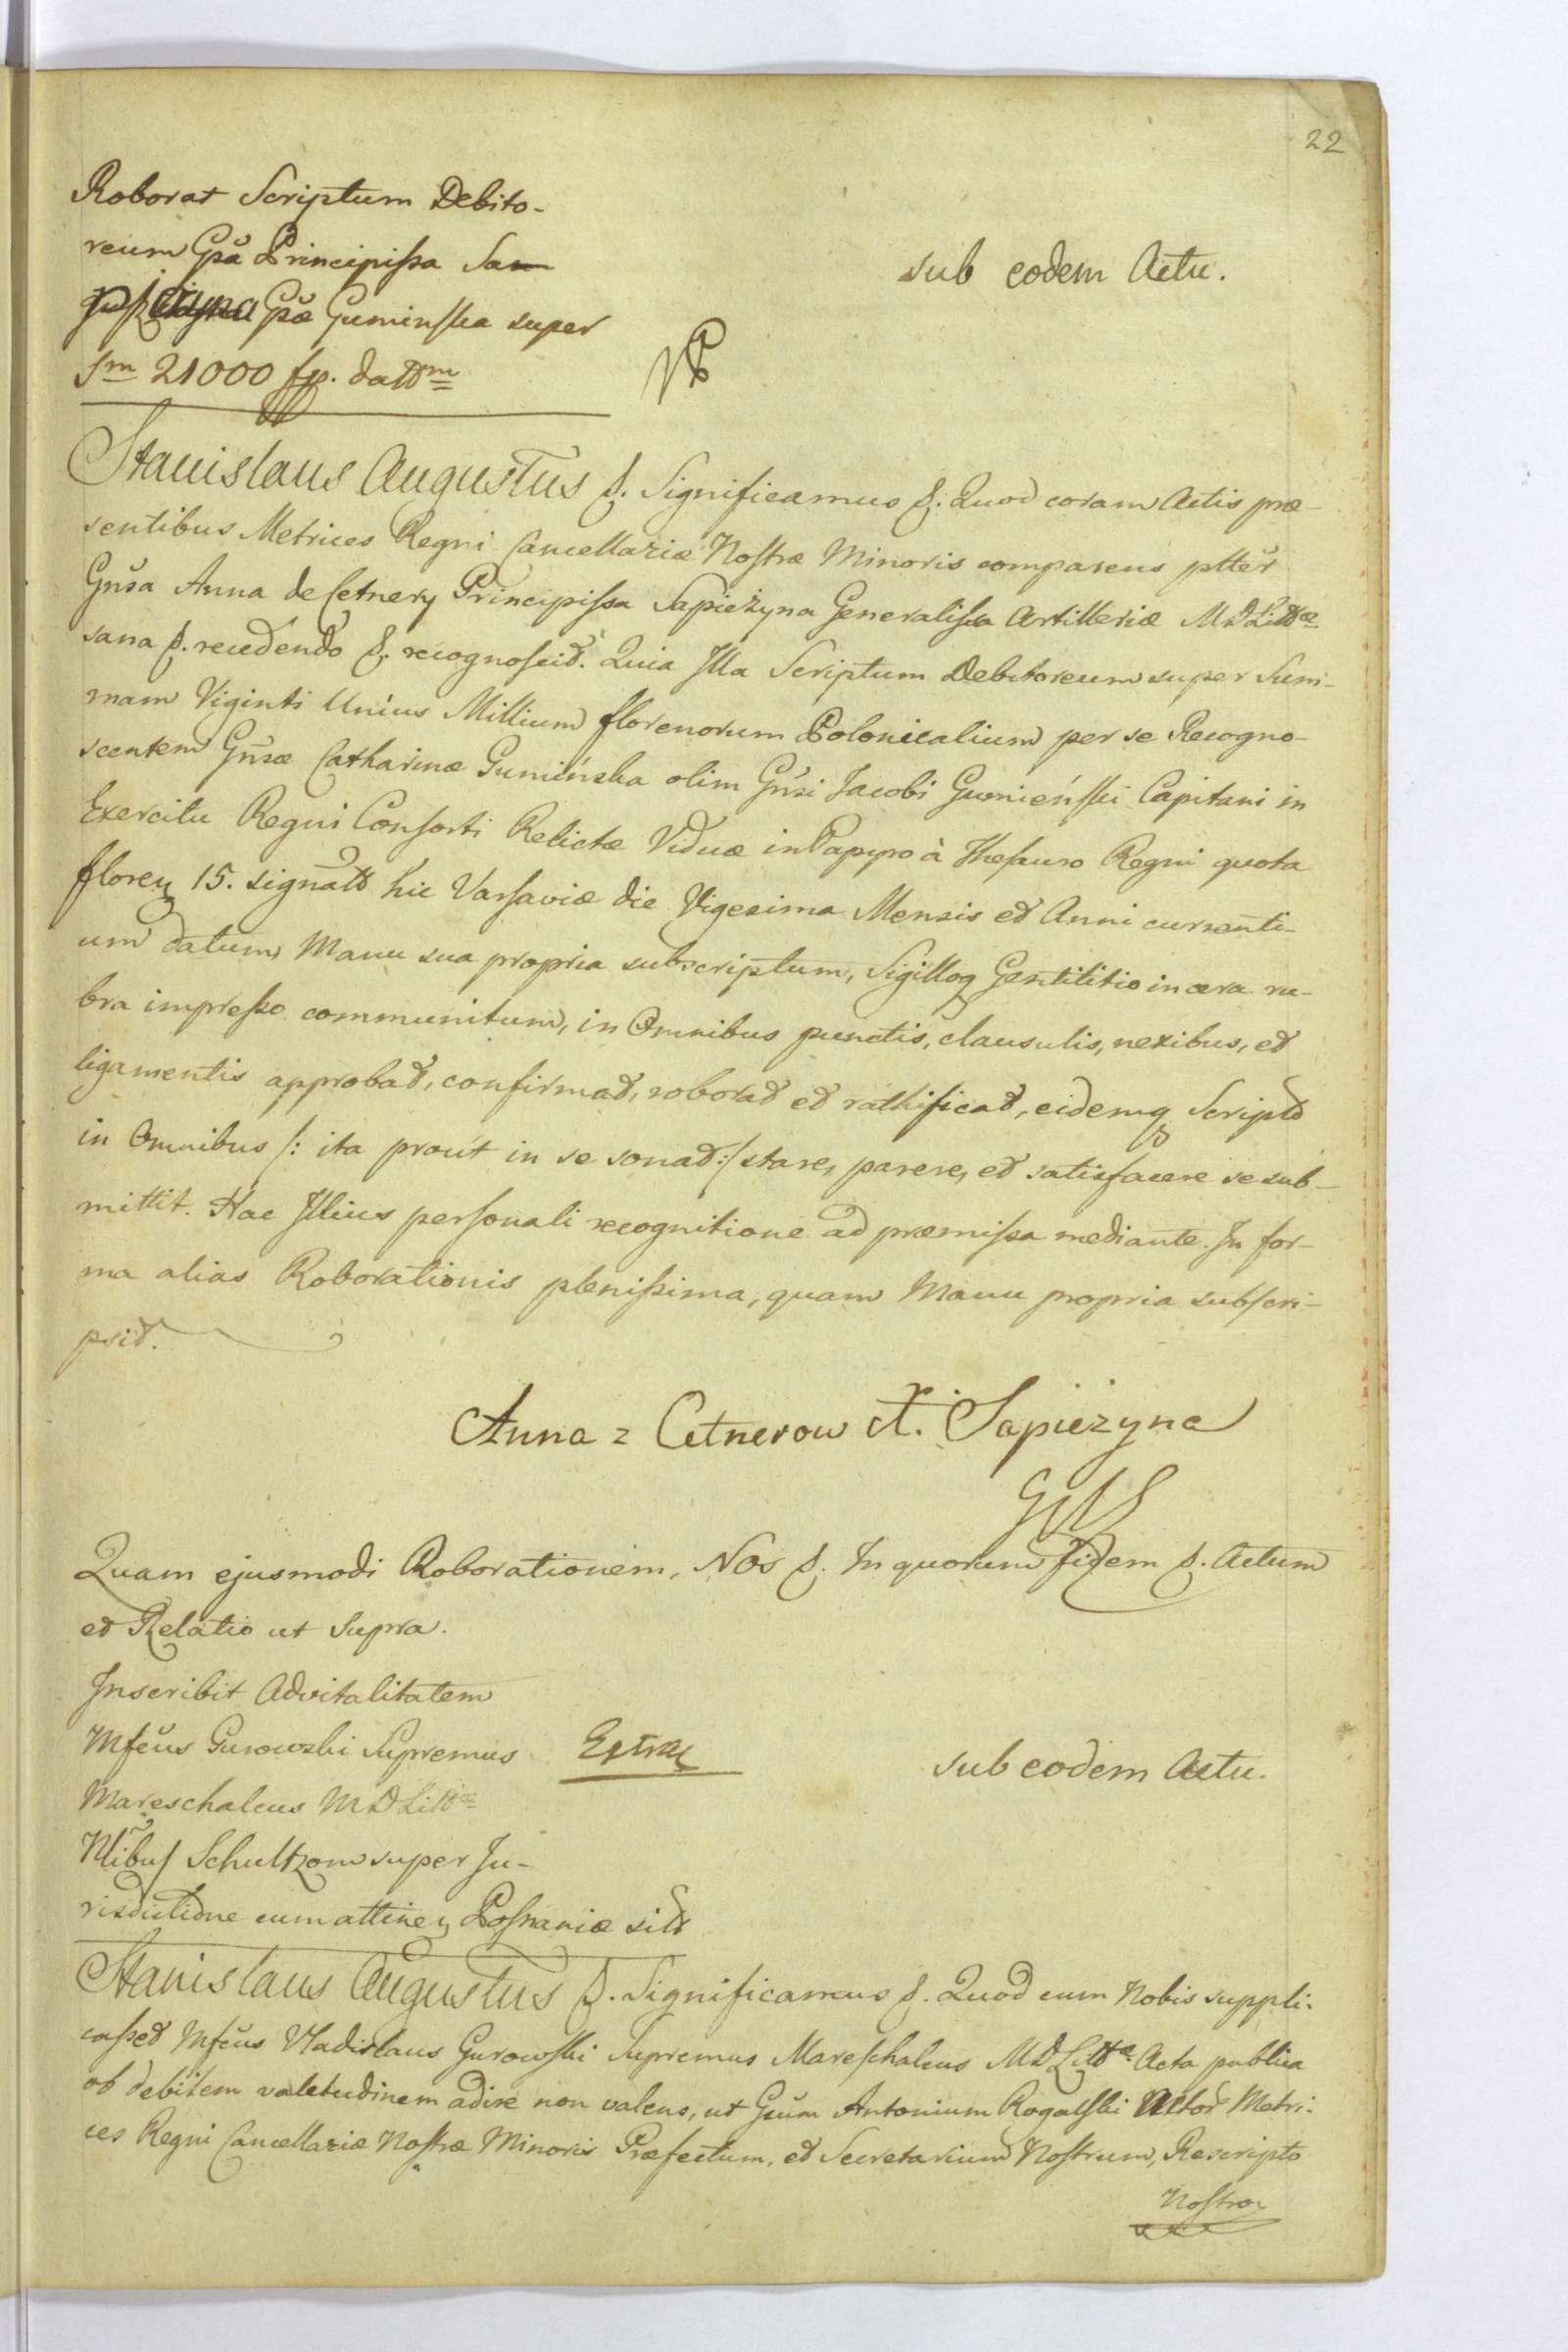 22
Roborat Scriptum Debito-
reum Gsa Principissa Sa
piezyna Gsae Guminska super
Sm 21000 fp. dattm
sub eodem Actu.
Stanislaus Augustus &. Significamus &. Quod coram Actis præ-
sentibus Metrices Regni Cancellariæ Nostræ Minoris comparens ptter
Gnsa Anna de Cetnery Principissa Sapieżyna Generalissa Artilleriæ M D Littæ
sana &. recedendo &. recognoscit. Quia Illa Scriptum Debitoreum super Sum-
mam Viginti Unius Millium florenorum Polonicalium per se Recogno-
scentem Gnsæ Catharinæ Gumińska olim Gnsi Jacobi Gumieński Capitani in
Exercitu Regni Consorti Relictæ Viduæ in Papyro à Thesauro Regni quota
floren 15. signatt hic Varsaviæ die Vigesima Mensis et Anni currenti-
um datum, Manu sua propria subscriptum, Sigilloq Gentilitio in cera ru-
bra impresso communitum, in Omnibus punctis, clausulis, nexibus, et
ligamentis approbat, confirmat, roborat et rathificat, eidemq Scripto
in Omnibus /: ita prout in se sonat :/ stare, parere, et satisfacere se sub-
mittit. Hac Illius personali recognitione ad præmissa mediante. In for-
ma alias Roborationis plenissima, quam Manu propria subscri-
psit.
Anna z Cetnerow X. Sapieżyna
Quam ejusmodi Roborationem, Nos &. In quorum fidem &. Actum
et Relatio ut Supra.
Inscribit Advitalitatem
Mfcus Gurowski Supremus
Mareschalcus M D Littæ
Nlibus Schultzom super Ju-
risdictione cum attinen Posnaniæ sitt
Extrac
sub eodem Actu.
Stanislaus Augustus &. Significamus &. Quod cum Nobis suppli-
casset Mfcus Vladislaus Gurowski Supremus Mareschalcus M D Litt Acta publica
ob debilem valetudinem adire non valens, ut Gsum Antonium Rogalski Actor Metri-
ces Regni Cancellariæ Nostræ Minoris Præfectum, et Secretarium Nostrum, Rescripto
Nostro